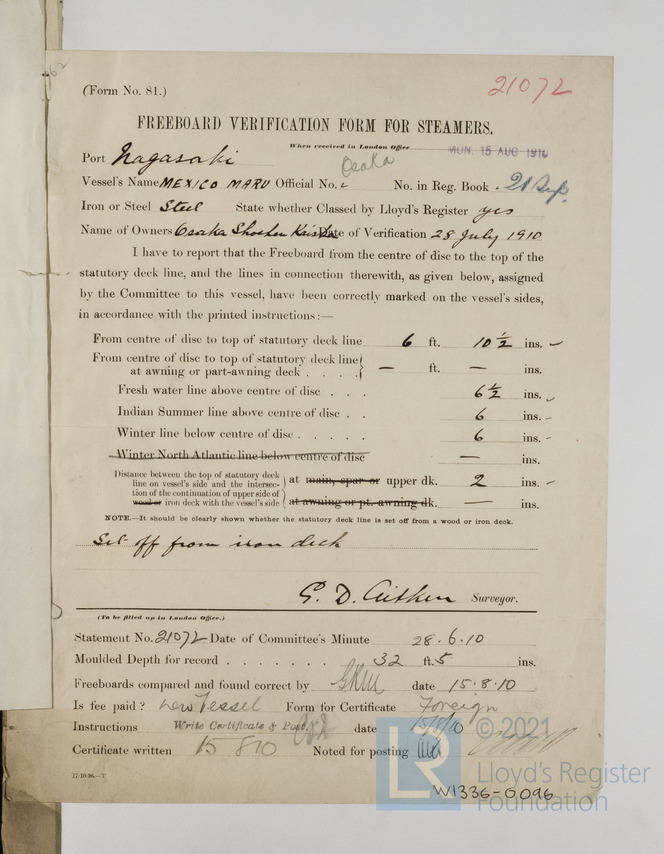 (Form No. 81.)
21072
FREEBOARD VERIFICATION FORM FOR STEAMERS.
When received in London Office MON. 15 AUG 1910
Port Nagasaki
Osaka
Vessel's Name MEXICO MARU Official No. No. in Reg. Book 21
Iron or Steel Steel State whether Classed by Lloyd's Register yes
Name of Owners Osaka Shosen Kaisha Date of Verification 28 July 1910
I have to report that the Freeboard from the centre of disc to the top of the
statutory deck line, and the lines in connection therewith, as given below, assigned
by the Committee to this vessel, have been correctly marked on the vessel's sides,
in accordance with the printed instructions:—
From centre of disc to top of statutory deck line 6 ft. 10 1/2 ins.
From centre of disc to top of statutory deck line
at awning or part-awning deck . . . . — ft. — ins.
Fresh water line above centre of disc . . . 6 1/2 ins.
Indian Summer line above centre of disc . . 6 ins.
Winter line below centre of disc . . . . . 6 ins.
Winter North Atlantic line below centre of disc — ins.
Distance between the top of statutory deck
line on vessel's side and the intersec-
tion of the continuation of upper side of
wood or iron deck with the vessel's side
at main, spar or upper dk. 2 ins.
at awning or pt. awning dk. — ins.
NOTE.—It should be clearly shown whether the statutory deck line is set off from a wood or iron deck.
Set off from iron deck
G. D. Aitken Surveyor.
(To be filled up in London Office.)
Statement No. 21072 Date of Committee's Minute 28.6.10
Moulded Depth for record . . . . . . . 32 ft. 5 ins.
Freeboards compared and found correct by date 15.8.10
Is fee paid? New Vessel Form for Certificate Foreign
Instructions Write Certificate & Post. date 15/8/10
Certificate written 15 8 10 Noted for posting
17.10.06.—T
© 2021
Lloyd's Register
Foundation
LR
W1336-0096